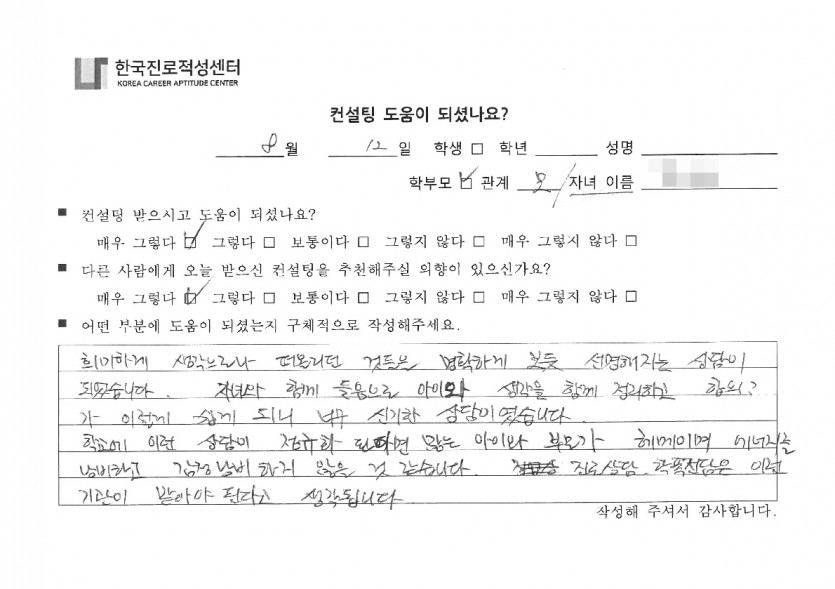 한국진로적성센터
KOREA CAREER APTITUDE CENTER
컨설팅 도움이 되셨나요?
8월 12일 학생 □ 학년 성명
학부모 ☑ 관계 모 / 자녀 이름
■ 컨설팅 받으시고 도움이 되셨나요?
매우 그렇다 ☑ 그렇다 □ 보통이다 □ 그렇지 않다 □ 매우 그렇지 않다 □
■ 다른 사람에게 오늘 받으신 컨설팅을 추천해주실 의향이 있으신가요?
매우 그렇다 ☑ 그렇다 □ 보통이다 □ 그렇지 않다 □ 매우 그렇지 않다 □
■ 어떤 부분에 도움이 되셨는지 구체적으로 작성해주세요.
희미하게 생각노르나 떠올리던 것들은 명확하게 붓듯 선명해지는 상담이
되였습니다. 자녀와 함께 들음으로 아이와 생각을 함께 정리하고 합의?
가 이렇게 쉽게 되니 너무 신기한 상담이였습니다.
학교에 이런 상담이 정규화 된다면 많은 아이와 부모가 헤메이며 에너지를
낭비하고 감정낭비 하지 않을 것 같습니다. 진로상담. 학폭전담은 이런
기관이 맡아야 된다고 생각됩니다
작성해 주셔서 감사합니다.